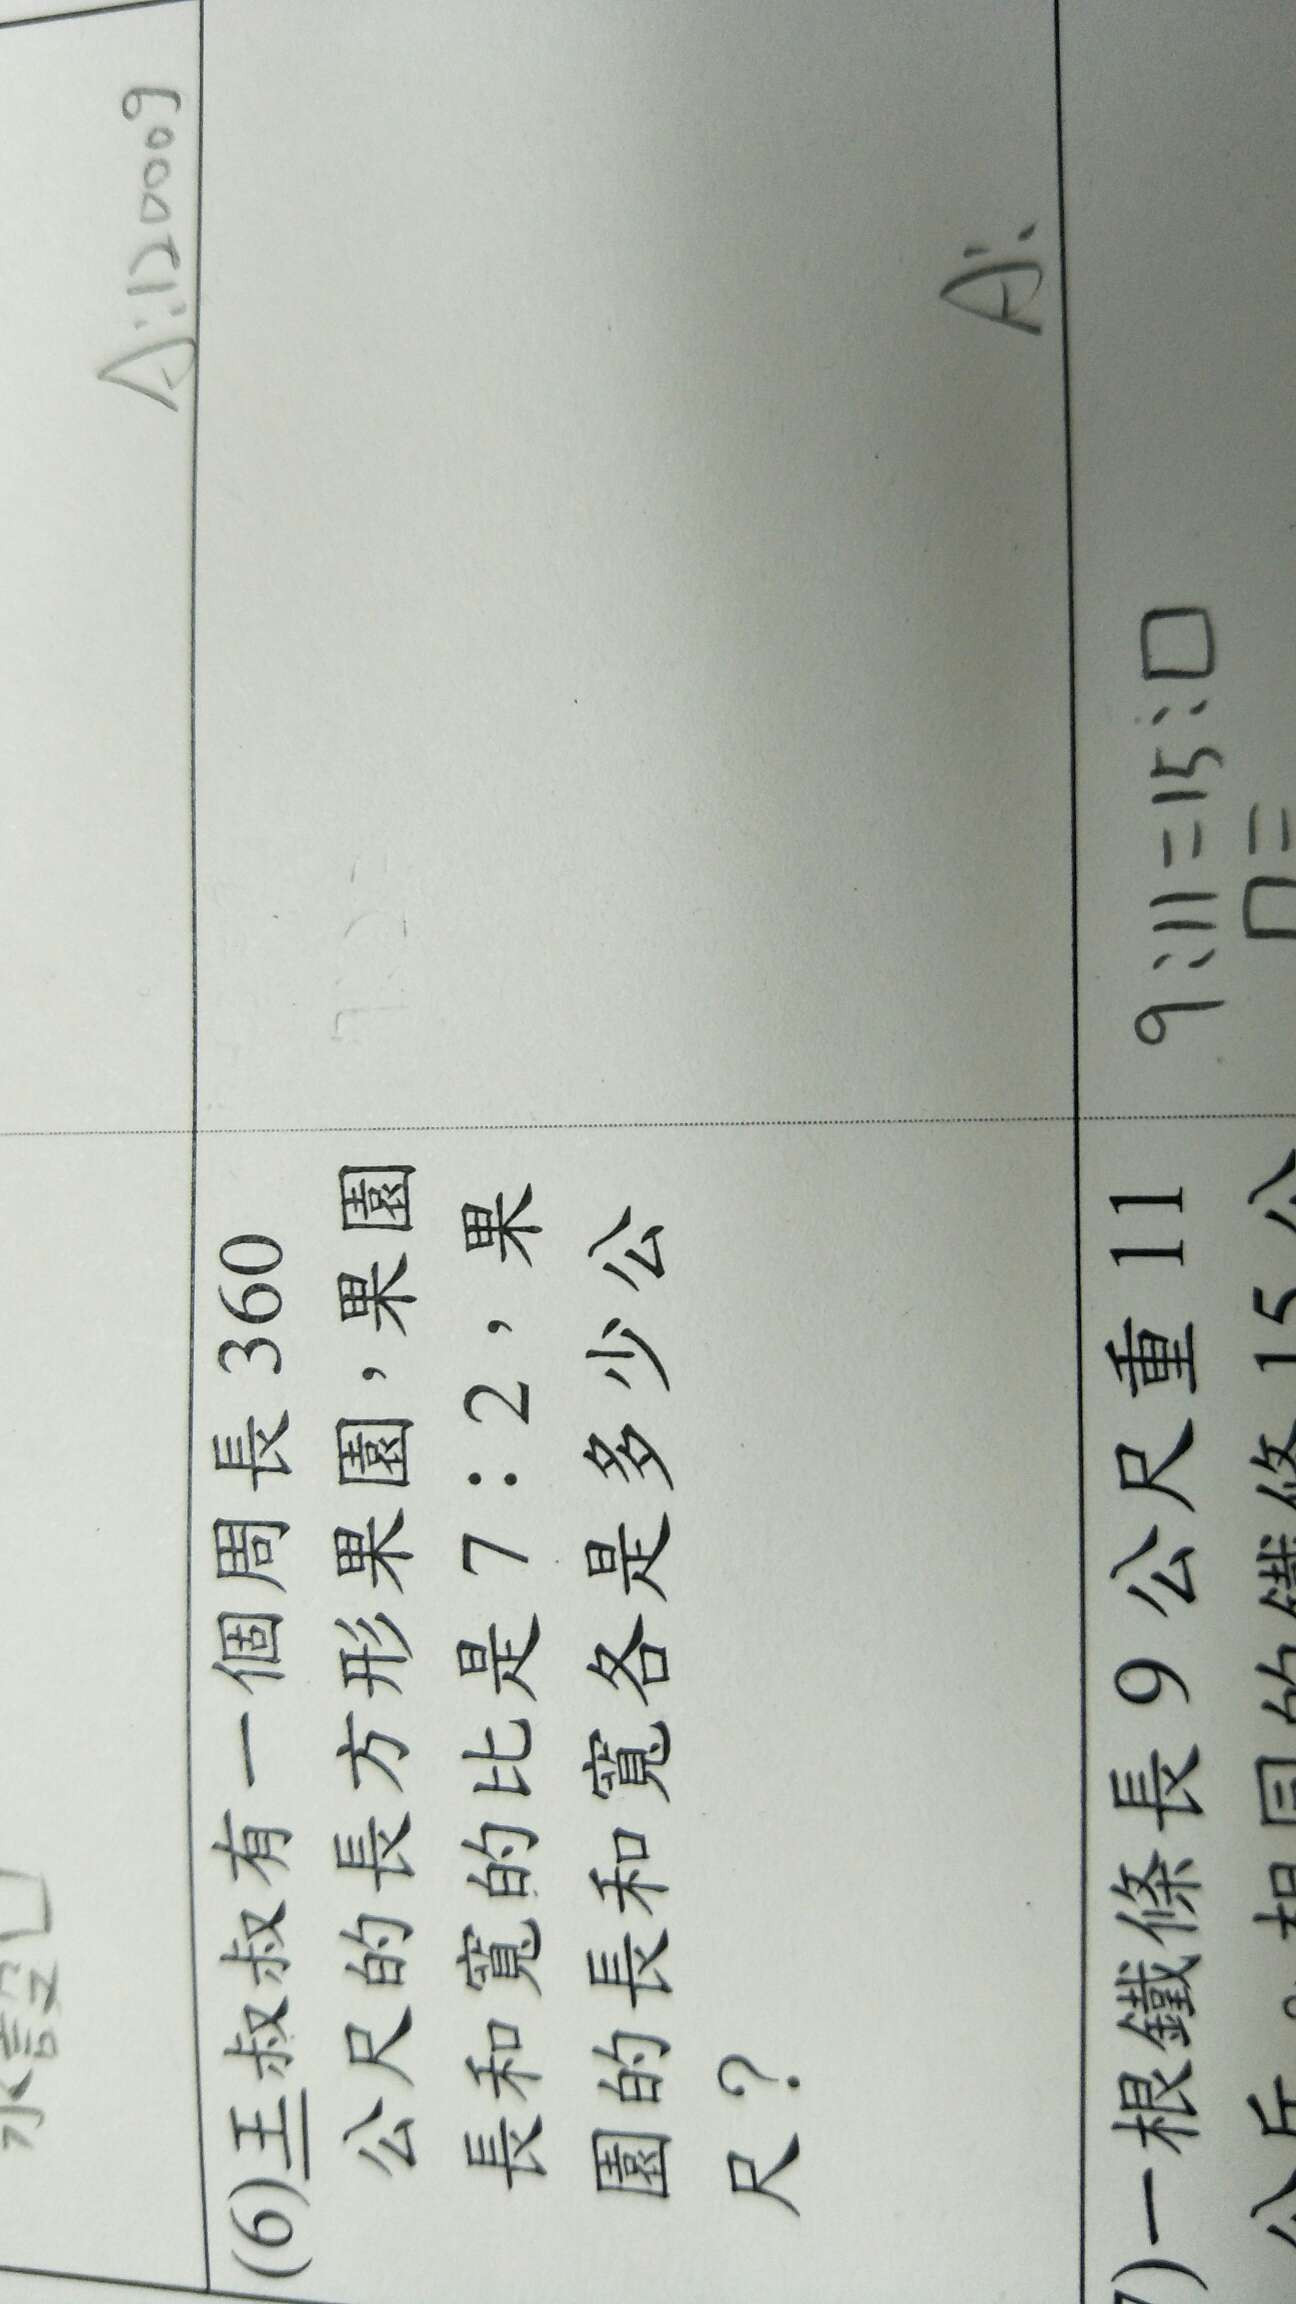 水設口
A:12000g
(6)王叔叔有一個周長360
公尺的長方形果園，果園
長和寬的比是7：2，果
園的長和寬各是多少公
尺？
7:2=
A:
7)一根鐵條長9公尺重11
公斤。相同的鐵條15公
9:11=15:□
□=